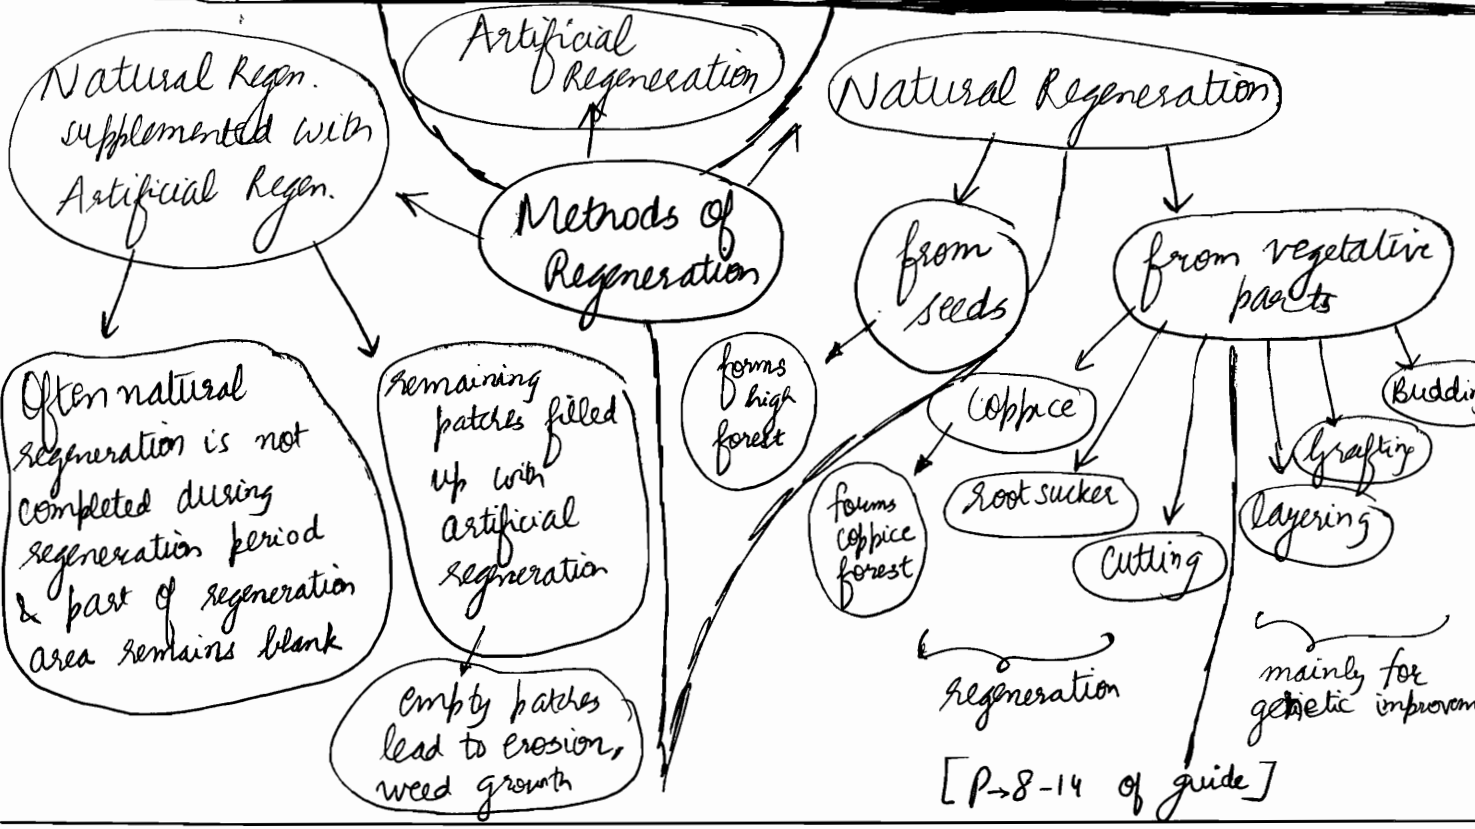 Artificial
Regeneration
Natural Regen.
supplemented with
Artificial Regen.
Natural Regeneration
Methods of
Regeneration
from
seeds
from vegetative
parts
Often natural
regeneration is not
completed during
regeneration period
& part of regeneration
area remains blank
remaining
patches filled
up with
artificial
regeneration
empty patches
lead to erosion,
weed growth
forms
high
forest
Coppice
forms
coppice
forest
root sucker
Cutting
layering
Grafting
Buddin
regeneration
mainly for
genetic improvem
[P→8-14 of guide]